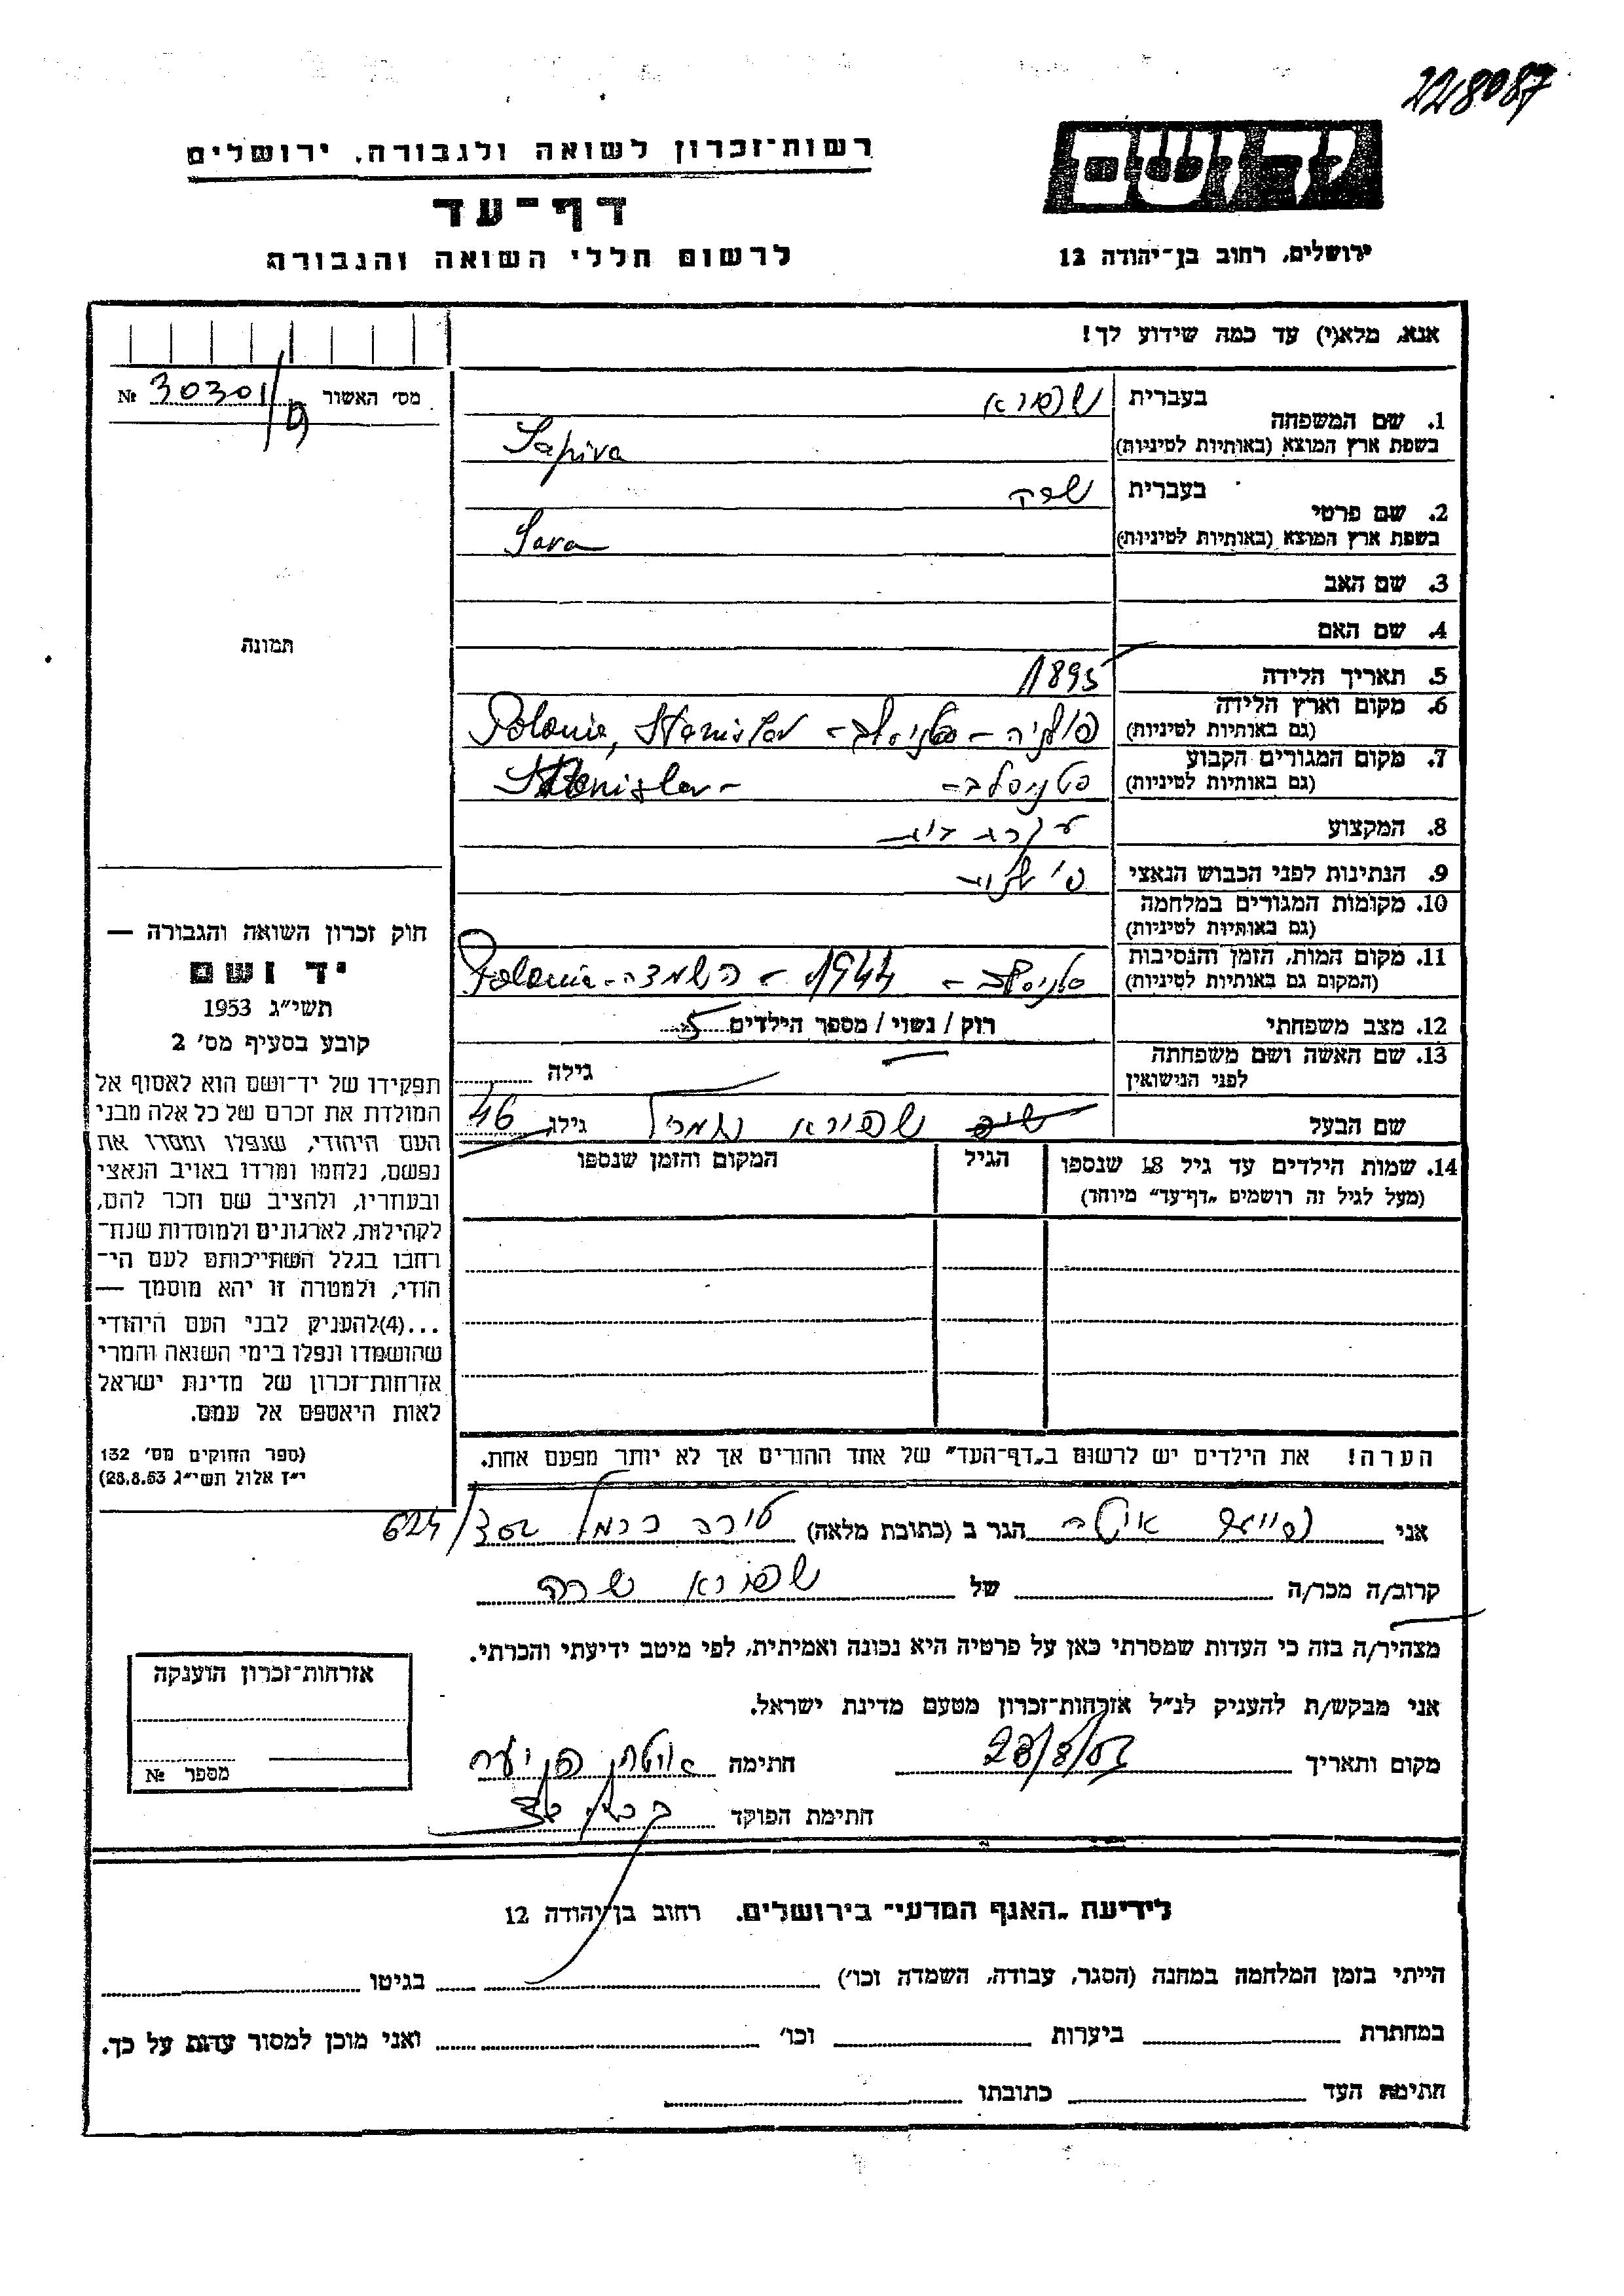 228087
יד ושם
רשות־זכרון לשואה ולגבורה, ירושלים
דף־עד
לרשום חללי השואה והגבורה
ירושלים, רחוב בן־יהודה 12
אנא, מלא(י) עד כמה שידוע לך!
מס׳ האשור № 30301/
1. שם המשפחה בעברית שפירא
בשפת ארץ המוצא (באותיות לטיניות) Sapira
2. שם פרטי בעברית שרה
בשפת ארץ המוצא (באותיות לטיניות) Sara
3. שם האב
4. שם האם
תמונה
5. תאריך הלידה 1895
6. מקום וארץ הלידה (גם באותיות לטיניות) פולניה - סטניסלב - Polonia, Stanislav
7. מקום המגורים הקבוע (גם באותיות לטיניות) סטניסלב - Stanislav -
8. המקצוע עקרת בית
9. הנתינות לפני הכבוש הנאצי
10. מקומות המגורים במלחמה (גם באותיות לטיניות)
11. מקום המות, הזמן והנסיבות (המקום גם באותיות לטיניות) סטניסלב - 1944 - השמדה - Polonia
12. מצב משפחתי רוק / נשוי / מספר הילדים 5
13. שם האשה ושם משפחתה לפני הנישואין גילה
שם הבעל שפירא גילו 46
14. שמות הילדים עד גיל 18 שנספו הגיל המקום והזמן שנספו
(מעל לגיל זה רושמים „דף־עד״ מיוחד)
חוק זכרון השואה והגבורה —
יד ושם
תשי״ג 1953
קובע בסעיף מס׳ 2
תפקידו של יד־ושם הוא לאסוף אל
המולדת את זכרם של כל אלה מבני
העם היהודי, שנפלו ומסרו את
נפשם, נלחמו ומרדו באויב הנאצי
ובעוזריו, ולהציב שם וזכר להם,
לקהילות, לארגונים ולמוסדות שנח־
רחבו בגלל השתייכותם לעם הי־
הודי, ולמטרה זו יהא מוסמך —
...(4)להעניק לבני העם היהודי
שהושמדו ונפלו בימי השואה והמרי
אזרחות־זכרון של מדינת ישראל
לאות היאספם אל עמם.
(ספר החוקים מס׳ 132
י״ז אלול תשי״ג 28.8.53)
הערה! את הילדים יש לרשום ב„דף־העד״ של אחד ההורים אך לא יותר מפעם אחת.
אני הגר ב (כתובת מלאה) טירה כרמל 624/
קרוב/ה מכר/ה של שפירא שרה
מצהיר/ה בזה כי העדות שמסרתי כאן על פרטיה היא נכונה ואמיתית, לפי מיטב ידיעתי והכרתי.
אני מבקש/ת להעניק לנ״ל אזרחות־זכרון מטעם מדינת ישראל.
מקום ותאריך חתימה
חתימת הפוקד
אזרחות־זכרון הוענקה
מספר №
לידיעת „האגף המדעי״ בירושלים, רחוב בן־יהודה 12
הייתי בזמן המלחמה במחנה (הסגר, עבודה, השמדה וכו׳) בגיטו
במחתרת ביערות וכו׳ ואני מוכן למסור עדות על כך.
חתימת העד כתובתו